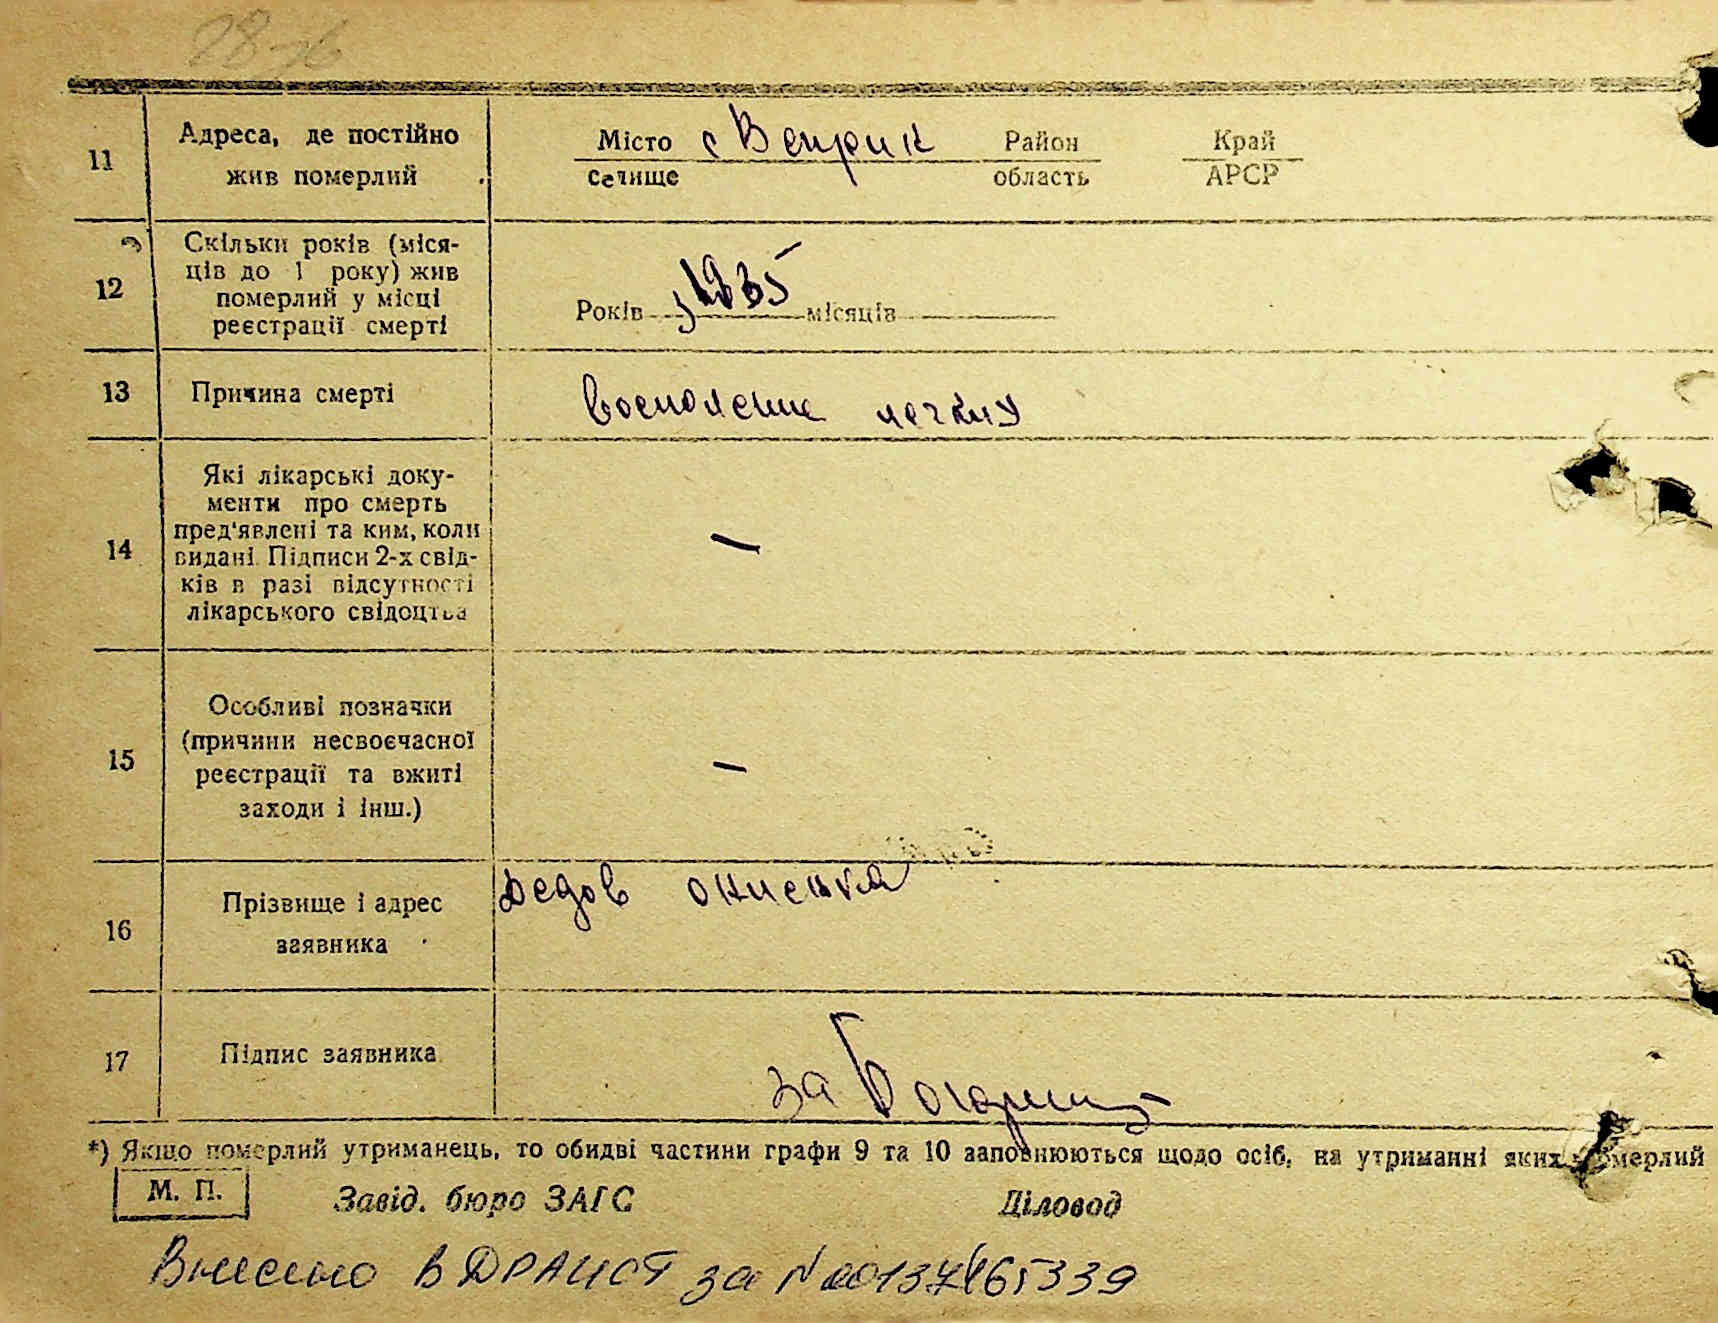 28
11 Адреса, де постійно жив померлий Місто с Веприк Район Край
Селище область АРСР
12 Скільки років (міся-
ців до 1 року) жив
померлий у місці
реєстрації смерті
Років з 1935 місяців
13 Причина смерті воспаление легких
14 Які лікарські доку-
менти про смерть
пред'явлені та ким, коли
видані. Підписи 2-х свід-
ків в разі відсутності
лікарського свідоцтва
—
15 Особливі позначки
(причини несвоєчасної
реєстрації та вжиті
заходи і інш.)
—
16 Прізвище і адрес
заявника
Дедов
17 Підпис заявника
за
*) Якщо померлий утриманець, то обидві частини графи 9 та 10 заповнюються щодо осіб, на утриманні яких померлий
М. П. Завід. бюро ЗАГС Діловод
Внесено в ДРАЦСГ за N